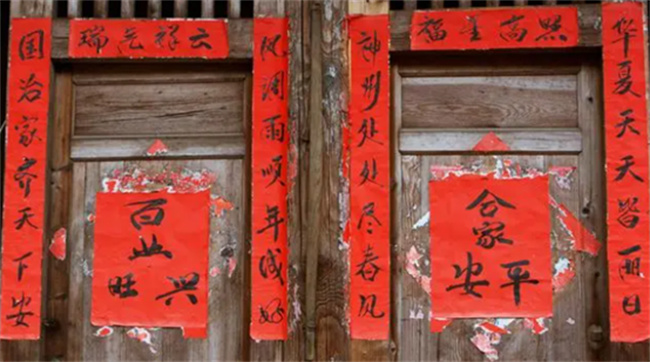 瑞祥云
国治家齐天下安
风调雨顺年成好
百
业
旺兴
福星高照
神州处处尽春风
华夏天天皆丽日
合
家
安平